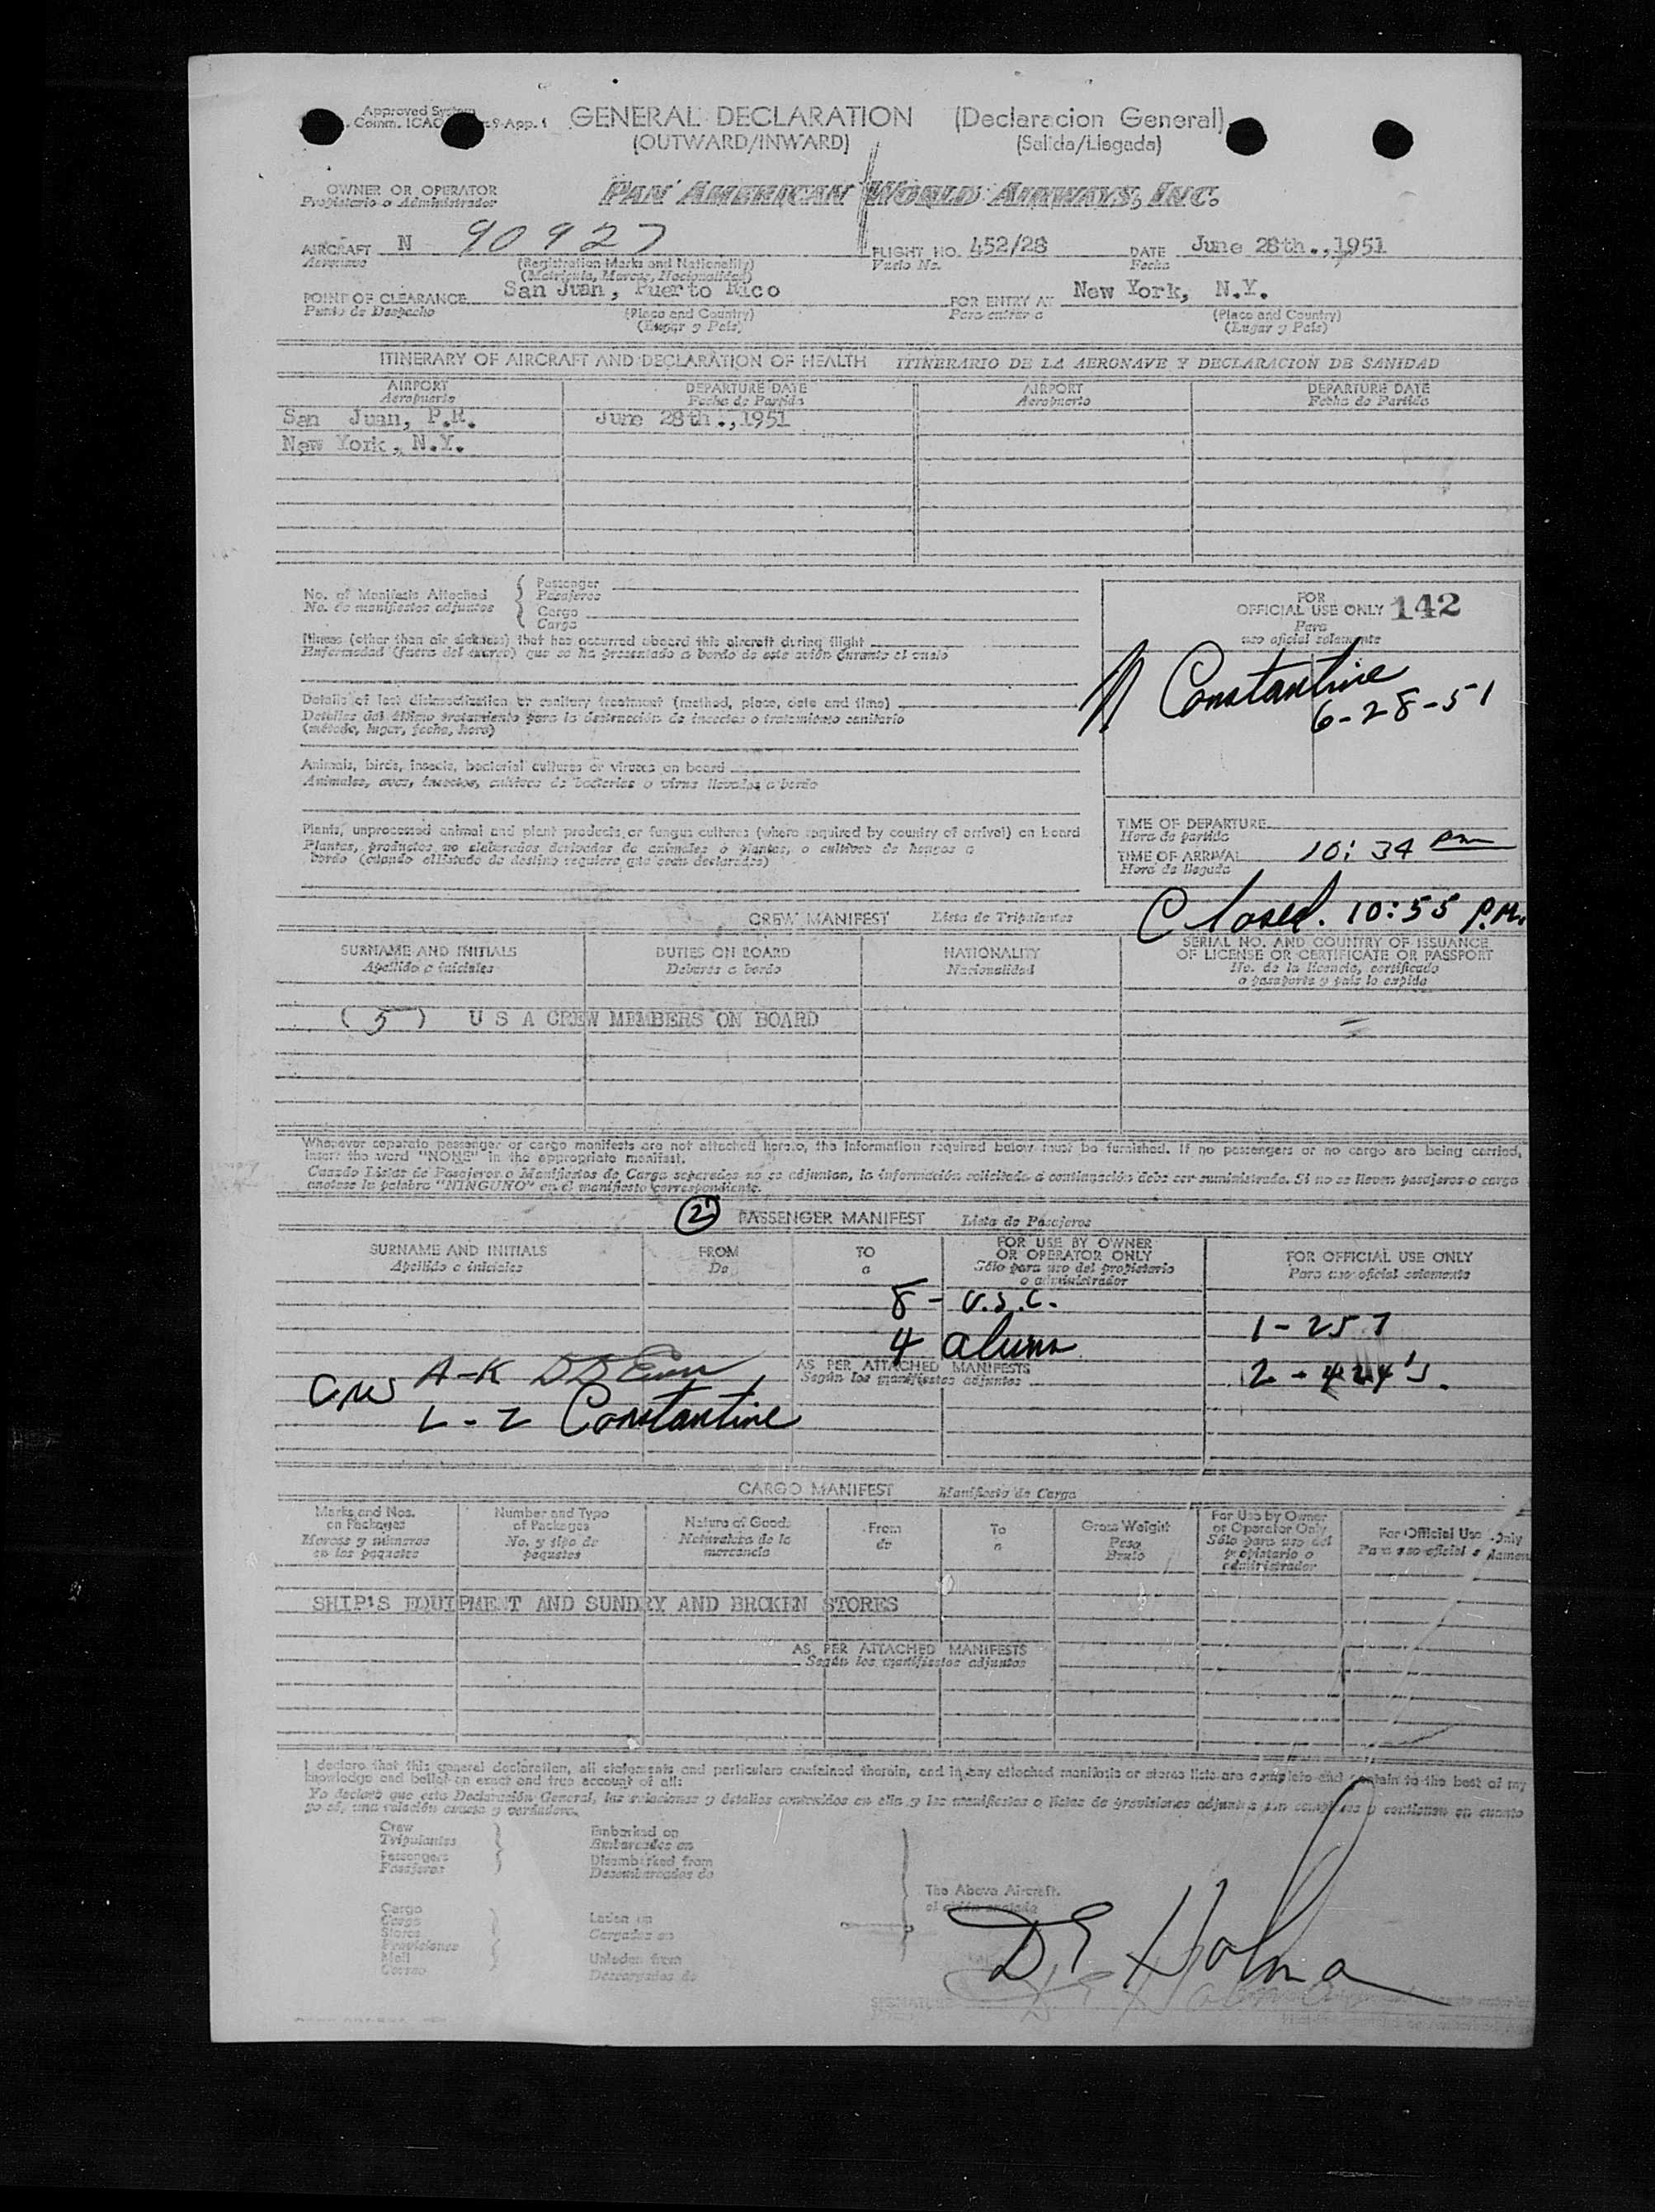 Approved System
Comm. ICAO 9-App. 1
GENERAL DECLARATION (Declaracion General)
(OUTWARD/INWARD) (Salida/Llegada)
OWNER OR OPERATOR PAN AMERICAN WORLD AIRWAYS, INC.
Propietario o Administrador
AIRCRAFT N 90927 FLIGHT NO. 452/28 DATE June 28th.,1951
Aeronave (Registration Marks and Nationality) Vuelo No. Fecha
(Matricula, Marcas, Nacionalidad)
POINT OF CLEARANCE San Juan, Puerto Rico FOR ENTRY AT New York, N.Y.
Punto de Despacho (Place and Country) Para entrar a (Place and Country)
(Lugar y Pais) (Lugar y Pais)
ITINERARY OF AIRCRAFT AND DECLARATION OF HEALTH ITINERARIO DE LA AERONAVE Y DECLARACION DE SANIDAD
AIRPORT DEPARTURE DATE AIRPORT DEPARTURE DATE
Aeropuerto Fecha de Partida Aeropuerto Fecha de Partida
San Juan, P.R. June 28th.,1951
New York, N.Y.
No. of Manifests Attached Passenger
No. de manifiestos adjuntos Pasajeros
Cargo
Carga
FOR
OFFICIAL USE ONLY 142
Para
uso oficial solamente
Illness (other than air sickness) that has occurred aboard this aircraft during flight
Enfermedad (fuera del mareo) que se ha presentado a bordo de este avión durante el vuelo
Constantine
6-28-51
Details of last disinsectization or sanitary treatment (method, place, date and time)
Detalles del último tratamiento para la destrucción de insectos o tratamiento sanitario
(método, lugar, fecha, hora)
Animals, birds, insects, bacterial cultures or viruses on board
Animales, aves, insectos, cultivos de bacterias o virus llevados a bordo
Plants, unprocessed animal and plant products, or fungus cultures (where required by country of arrival) on board
Plantas, productos no elaborados derivados de animales o plantas, o cultivos de hongos a
bordo (cuando el Estado de destino requiere que sean declarados)
TIME OF DEPARTURE
Hora de partida
TIME OF ARRIVAL 10:34 pm
Hora de llegada
Closed. 10:55 P.M.
CREW MANIFEST Lista de Tripulantes
SURNAME AND INITIALS DUTIES ON BOARD NATIONALITY SERIAL NO. AND COUNTRY OF ISSUANCE
OF LICENSE OR CERTIFICATE OR PASSPORT
Apellido e iniciales Deberes a bordo Nacionalidad No. de la licencia, certificado
o pasaporte y pais lo expide
(5) U S A CREW MEMBERS ON BOARD
Whenever separate passenger or cargo manifests are not attached hereto, the information required below must be furnished. If no passengers or no cargo are being carried,
insert the word "NONE" in the appropriate manifest.
Cuando Listas de Pasajeros o Manifiestos de Carga separados no se adjuntan, la información solicitada a continuación debe ser suministrada. Si no se llevan pasajeros o carga
anotese la palabra "NINGUNO" en el manifiesto correspondiente.
2 PASSENGER MANIFEST Lista de Pasajeros
SURNAME AND INITIALS FROM TO FOR USE BY OWNER
OR OPERATOR ONLY FOR OFFICIAL USE ONLY
Apellido e iniciales De a Sólo para uso del propietario
o administrador Para uso oficial solamente
8 - U.S.C.
4 aliens 1-257
AS PER ATTACHED MANIFESTS 2-424's.
Según los manifiestos adjuntos
A-K
L-Z Constantine
CARGO MANIFEST Manifiesto de Carga
Marks and Nos.
on Packages
Marcas y números
en los paquetes
Number and Type
of Packages
No. y tipo de
paquetes
Nature of Goods
Naturaleza de la
mercancia
From
de
To
a
Gross Weight
Peso
Bruto
For Use by Owner
or Operator Only
Sólo para uso del
propietario o
administrador
For Official Use Only
Para uso oficial
SHIP'S EQUIPMENT AND SUNDRY AND BROKEN STORES
AS PER ATTACHED MANIFESTS
Según los manifiestos adjuntos
I declare that this general declaration, all statements and particulars contained therein, and in any attached manifests or stores lists are complete and contain to the best of my
knowledge and belief an exact and true account of all:
Yo declaro que esta Declaración General, las relaciones y detalles contenidos en ella y los manifiestos o listas de provisiones adjuntas son completos y contienen en cuanto
yo sé, una relación exacta y verdadera.
Crew
Tripulantes
Passengers
Pasajeros
Embarked on
Embarcados en
Disembarked from
Desembarcados de
The Above Aircraft.
Cargo
Carga
Stores
Provisiones
Mail
Correo
Laden on
Cargados en
Unladen from
Descargados de
SIGNATURE